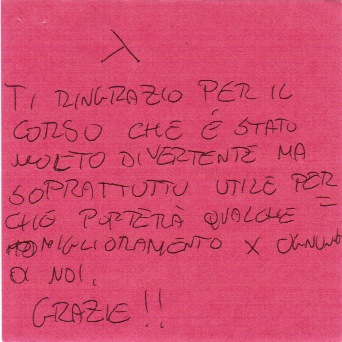 λ
TI RINGRAZIO PER IL
CORSO CHE È STATO
MOLTO DIVERTENTE MA
SOPRATTUTTO UTILE PER=
CHÉ PORTERÀ QUALCHE
MIGLIORAMENTO X OGNUNO
DI NOI.
GRAZIE!!